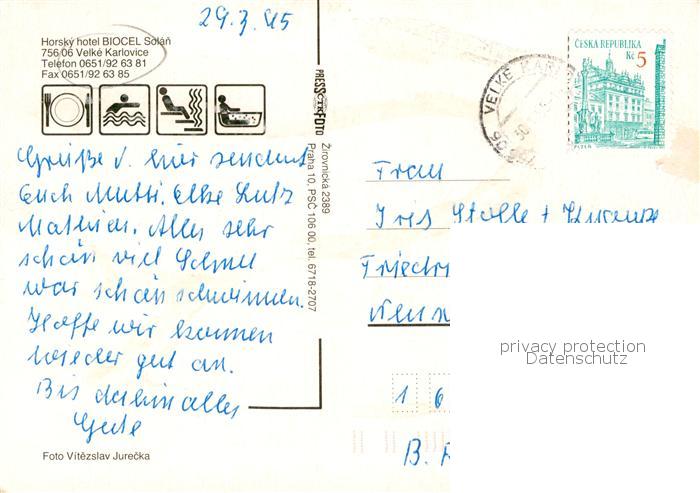 29.3.95
Horský hotel BIOCEL Soláň
756 06 Velké Karlovice
Telefon 0651/92 63 81
Fax 0651/92 63 85
Grüße v. hier sendent
Euch Mutti. Elke Lutz
Mathias. Alles sehr
schön viel Schnee
war schön schwimmen.
Hoffe wir kommen
wieder gut an.
Bis dahin alles
Gute
Foto Vítězslav Jurečka
PRESSFOTO
Žirovnická 2389
Praha 10, PSČ 106 00, tel. 6718-2707
ČESKÁ REPUBLIKA
Kč 5
PLZEŇ
VELKÉ KAR
Frau
Iris Stolle +
Friedr
Neu
1 6
B.
privacy protection
Datenschutz